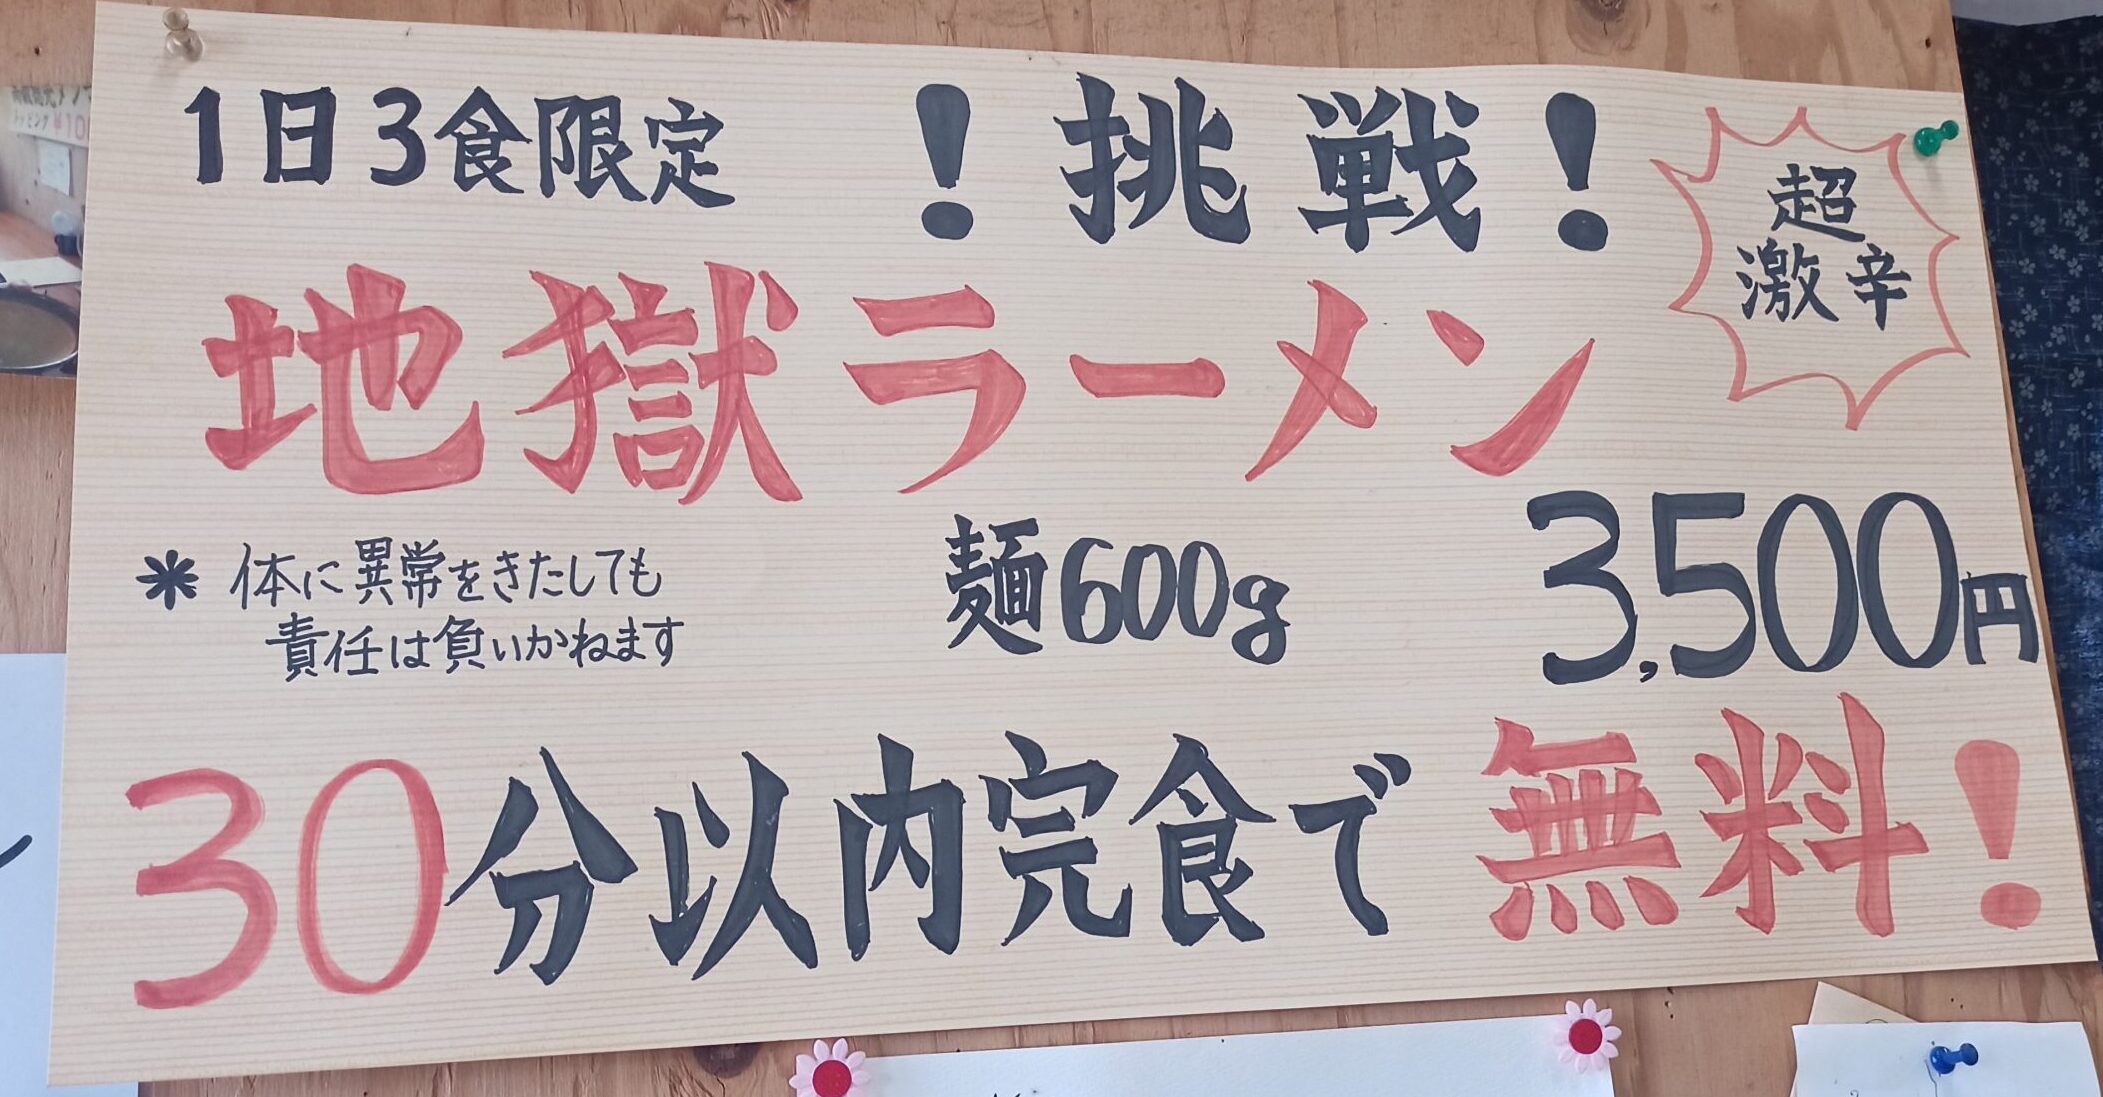 1日3食限定
！挑戦！
超
激辛
地獄ラーメン
＊体に異常をきたしても
責任は負いかねます
麺600g
3,500円
30分以内完食で無料！